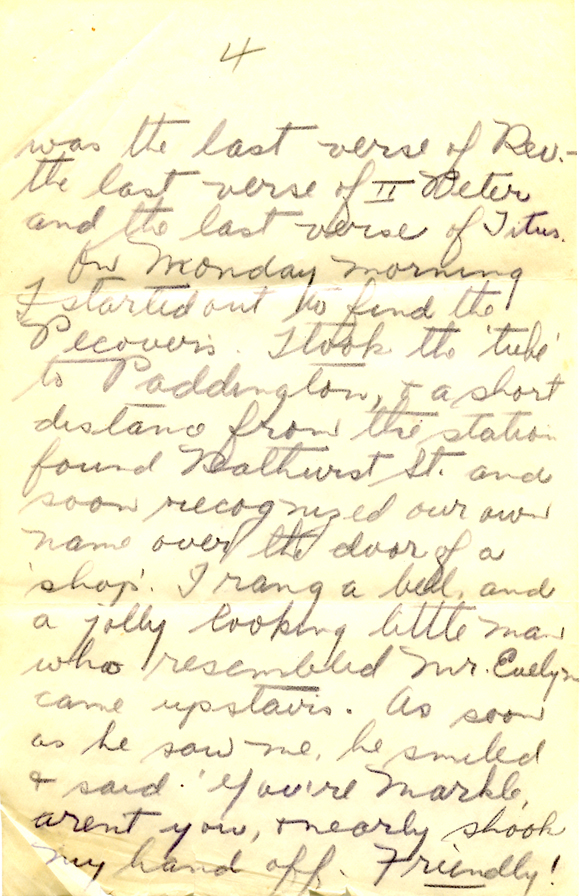 4
was the last verse of Rev.-
the last verse of II Peter
and the last verse of Titus.
On Monday morning
I started out to find the
Pecovers. I took the 'tube'
to Paddington, & a short
distance from the station
found Bathurst St. and
soon recognized our own
name over the door of a
'shop'. I rang a bell, and
a jolly looking little man
who resembled Mr. Evelyn
came upstairs. As soon
as he saw me, he smiled
& said 'You're Markle,
arent you, & nearly shook
my hand off. Friendly!